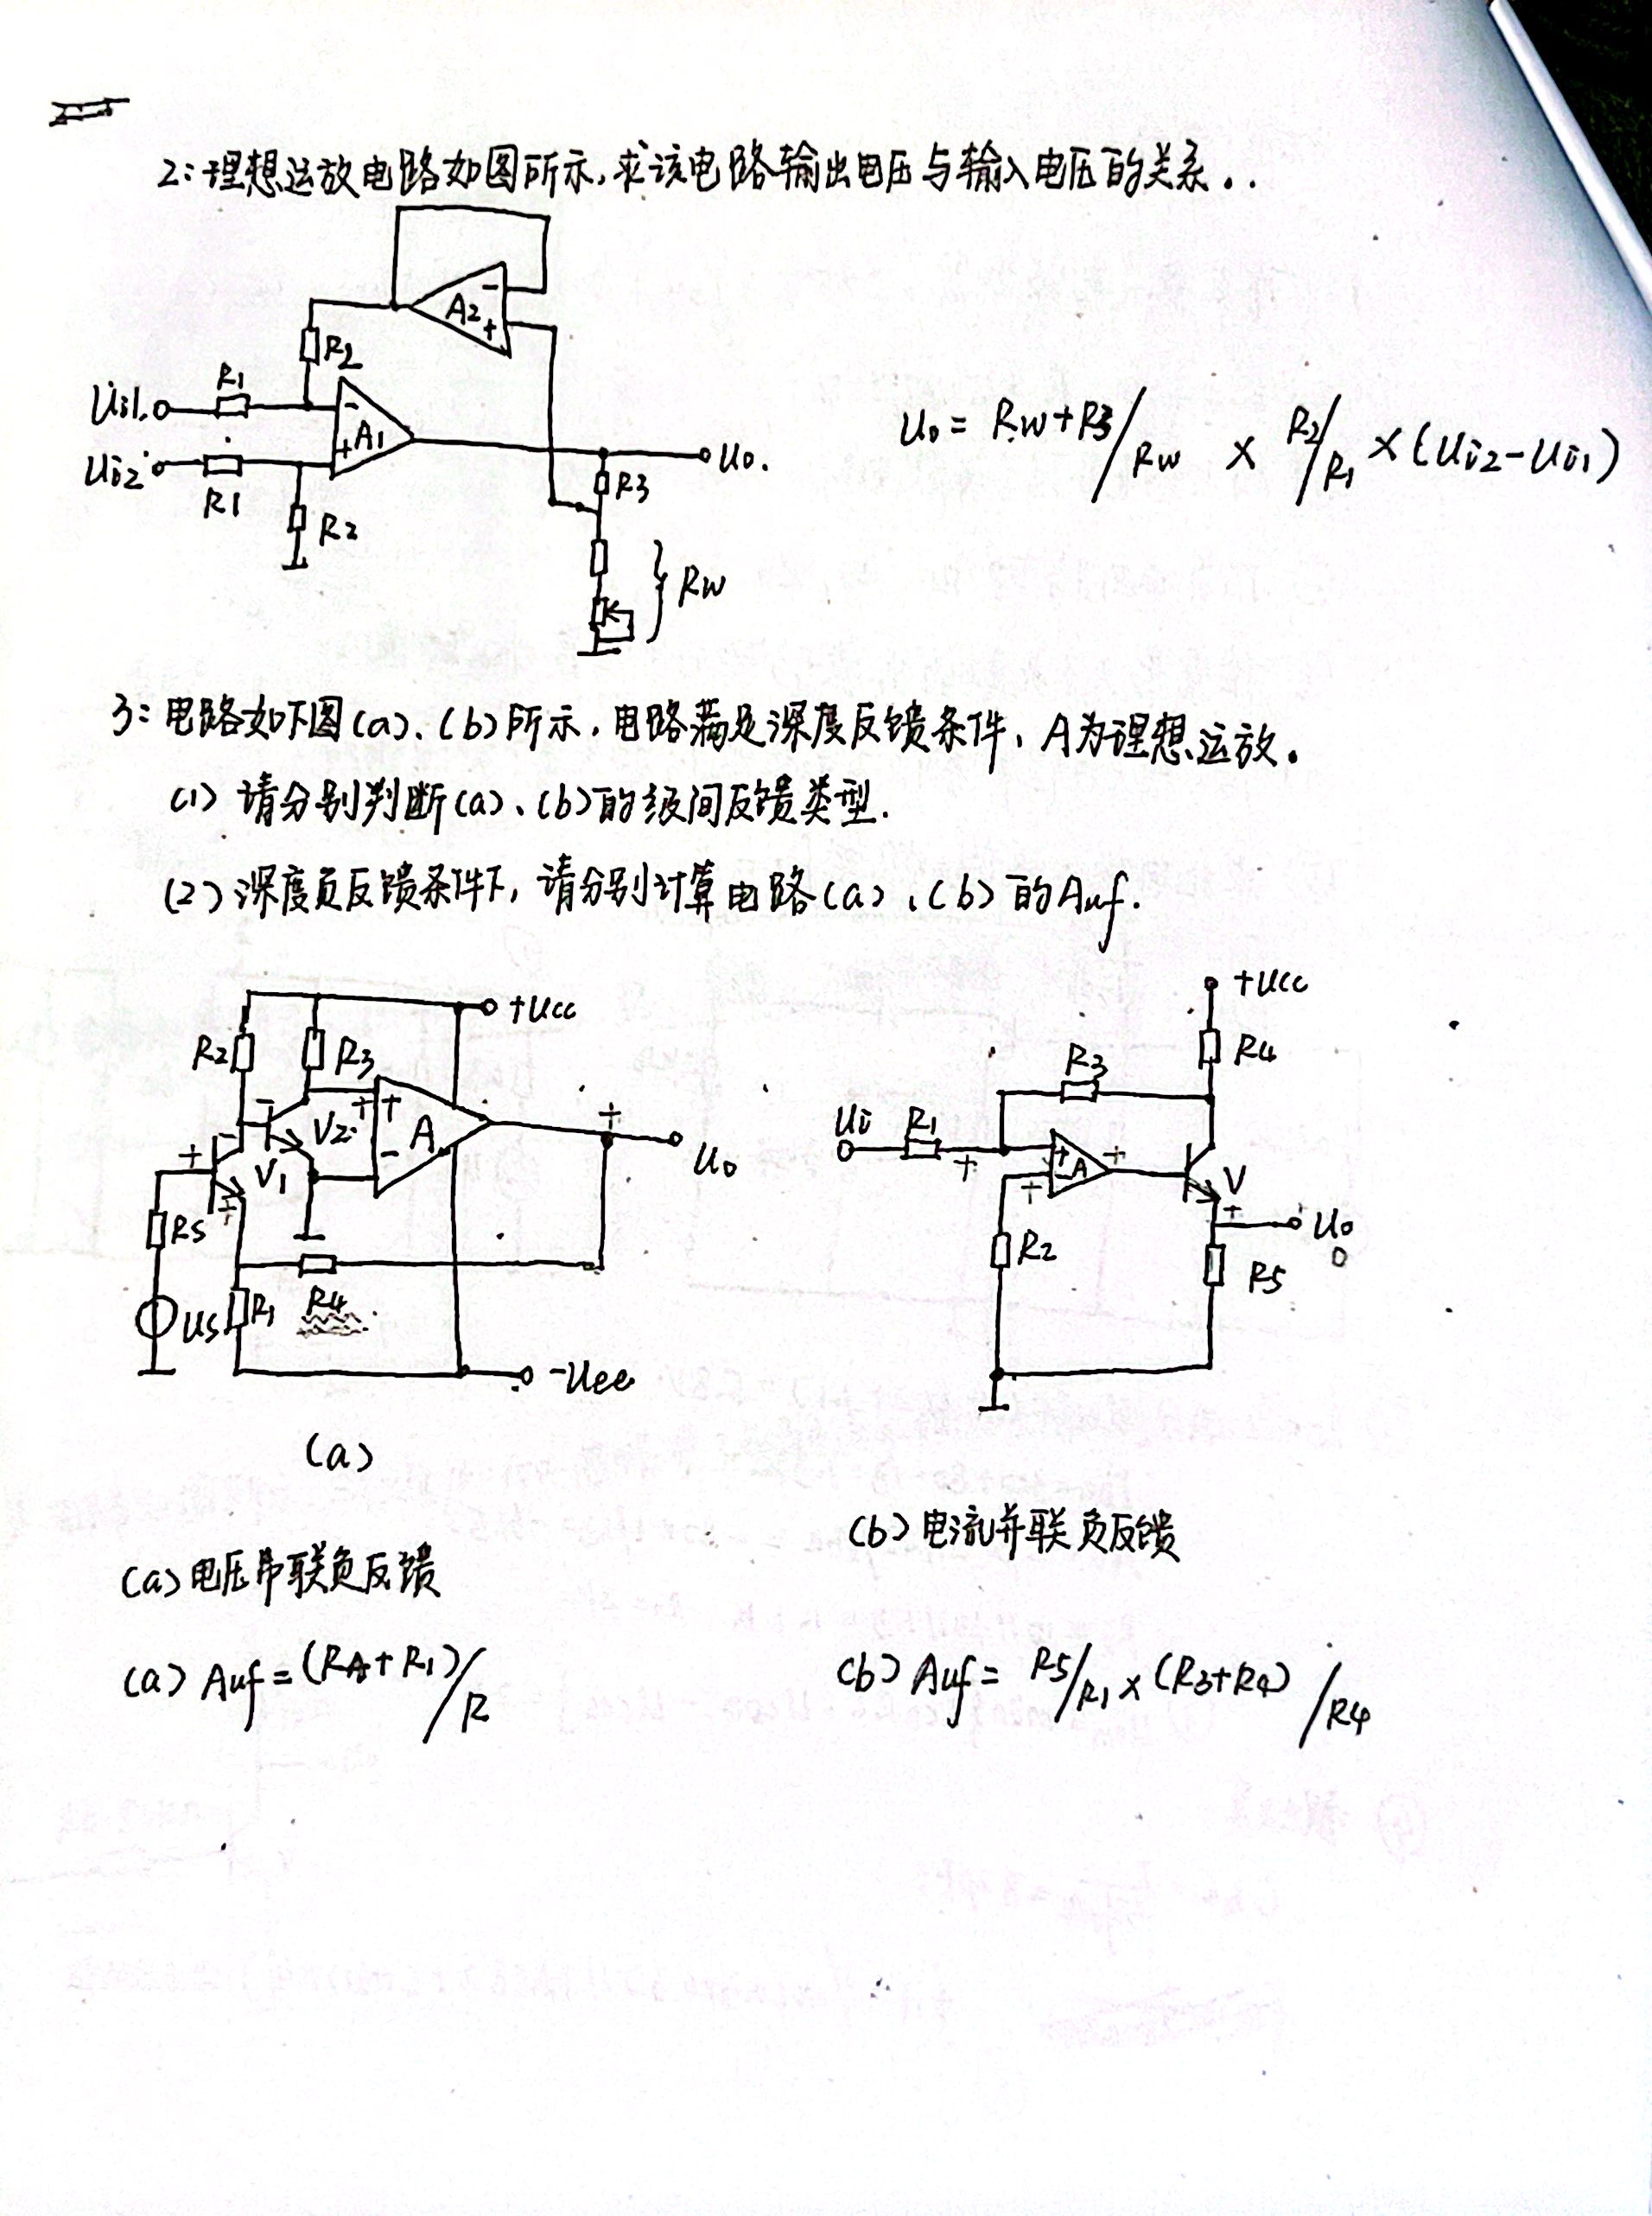 2:理想运放电路如图所示,求该电路输出电压与输入电压的关系..
A2
-
+
R2
R1
Ui1.
-
A1
+
Ui2
R1
R2
U0.
R3
RW
U0 = RW+R3/RW × R2/R1 ×(Ui2-Ui1)
3:电路如下图(a)、(b)所示,电路满足深度反馈条件、A为理想运放。
(1) 请分别判断(a)、(b)的级间反馈类型.
(2)深度负反馈条件下,请分别计算电路(a)、(b)的Auf.
+Ucc
R2
R3
-
+ +
V2
A
-
+
V1
+
U0
+
RS
US
R1
R4
-Uee
(a)
+Ucc
R4
R3
Ui
R1
+
+
A
+
+
V
+
U0
R2
R5
(b)电流并联负反馈
(a)电压串联负反馈
(a) Auf=(R4+R1)/R
(b) Auf= R5/R1×(R3+R4)/R4